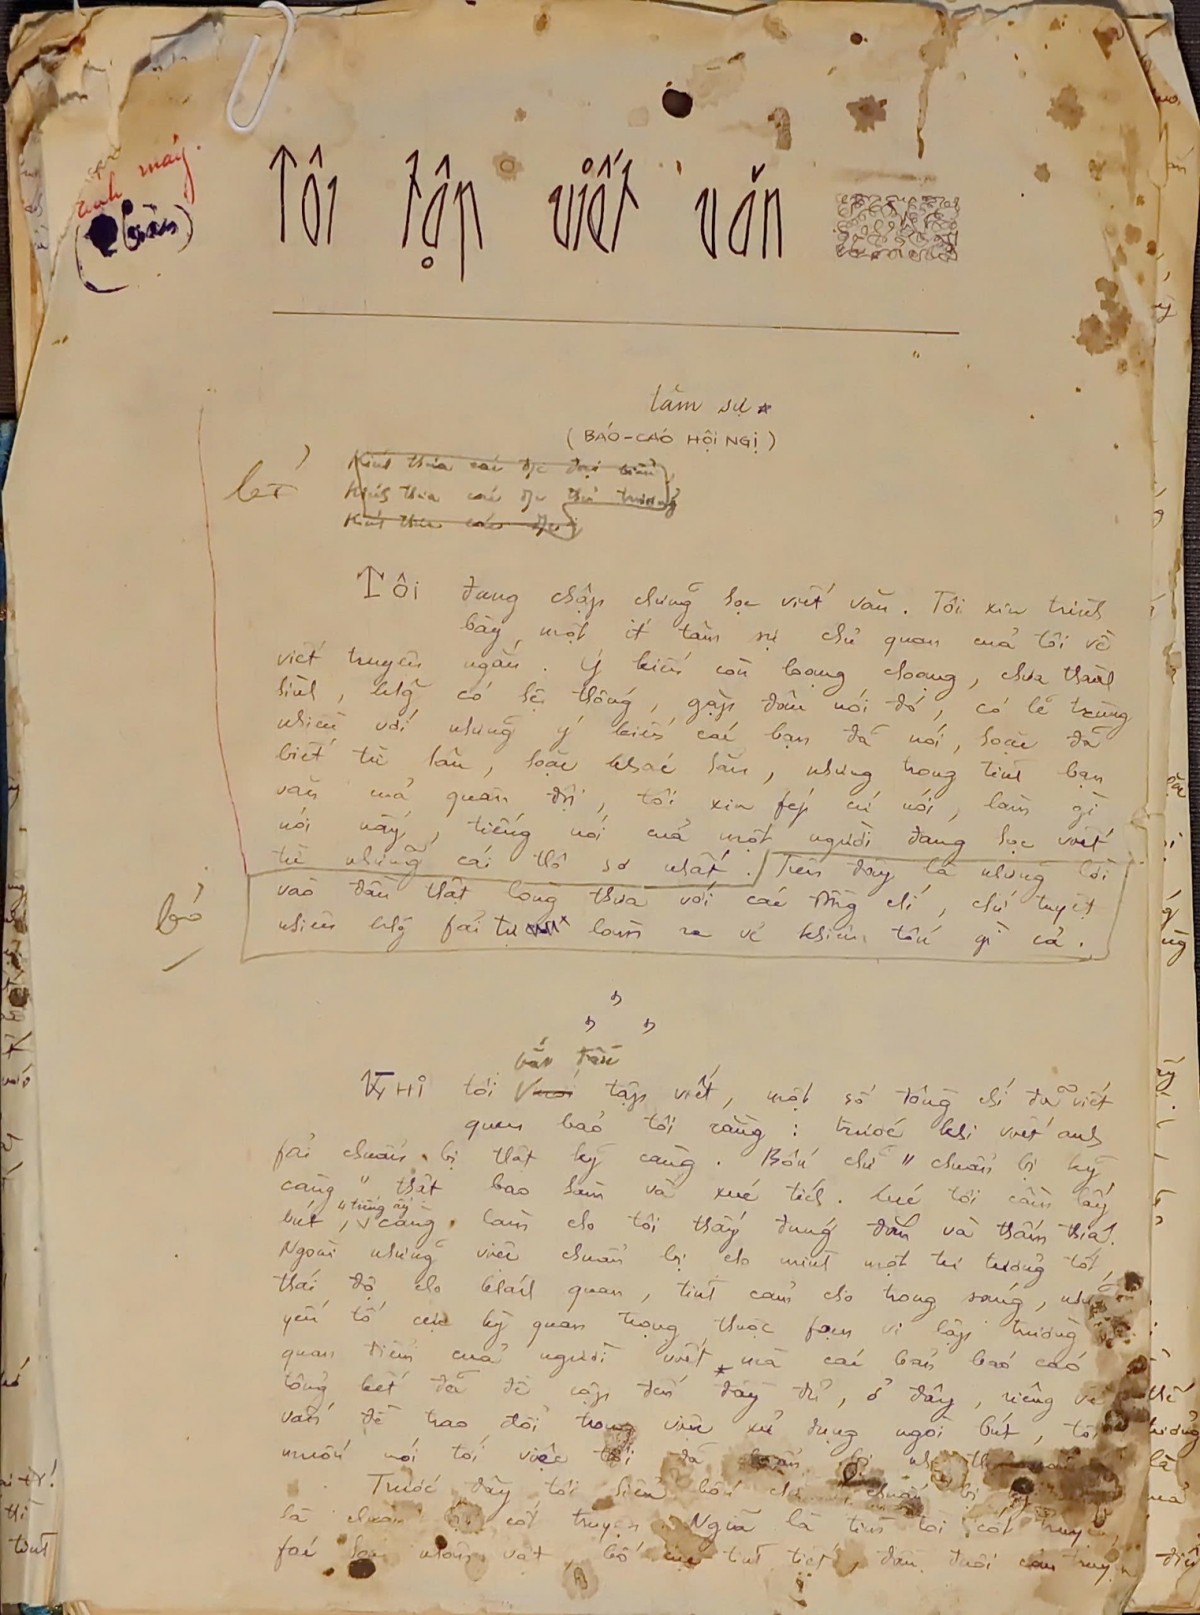 đánh máy.
Tôi tập viết văn
tâm sự
(BÁO-CÁO HỘI NGHỊ)
Kính thưa các đ/c đại biểu
Kính thưa các đ/c thủ trưởng
Kính thưa các đ/c
Tôi đang chập chững học viết văn. Tôi xin trình
bày một ít tâm sự chủ quan của tôi về
viết truyện ngắn. Ý kiến còn loạng choạng, chưa thành
hình, khg có hệ thống, gặp đâu nói đó, có lẽ trùng
nhiều với những ý kiến các bạn đã nói, hoặc đã
biết từ lâu, hoặc khác hẳn, nhưng trong tình bạn
văn của quân đội, tôi xin fép cứ nói, làm gì
nói nấy, tiếng nói của một người đang học viết
từ những cái thô sơ nhất. Trên đây là những lời
bỏ
vào đầu thật lòng thưa với các đồng chí, chứ tuyệt
nhiên khg fải tự làm ra vẻ khiêm tốn gì cả.
vấn
KHI tôi tập viết, một số đồng chí đã viết
quen bảo tôi rằng: trước khi viết anh
fải chuẩn bị thật kỹ càng. Bốn chữ "chuẩn bị kỹ
càng" thật bao hàm và xúc tích. Lúc tôi cầm lấy
bút, càng làm cho tôi thấy đúng đắn và thấm thía.
Ngoài những việc chuẩn bị cho mình một tư tưởng tốt,
thái độ cho khách quan, tình cảm cho trong sáng,
yếu tố cực kỳ quan trọng thuộc fạm vi lập trường
quan điểm của người viết mà các bản báo cáo
tổng kết đã đề cập đến đầy đủ, ở đây, riêng về
vấn đề trao đổi trong việc sử dụng ngòi bút, tôi
muốn nói tới việc tôi đã chuẩn bị
Trước đây tôi hiểu bốn chữ chuẩn bị
là chuẩn bị cốt truyện. Nghĩa là tìm tòi cốt truyện,
fải nhân vật, bố cục tình tiết, đầu đuôi câu truyện